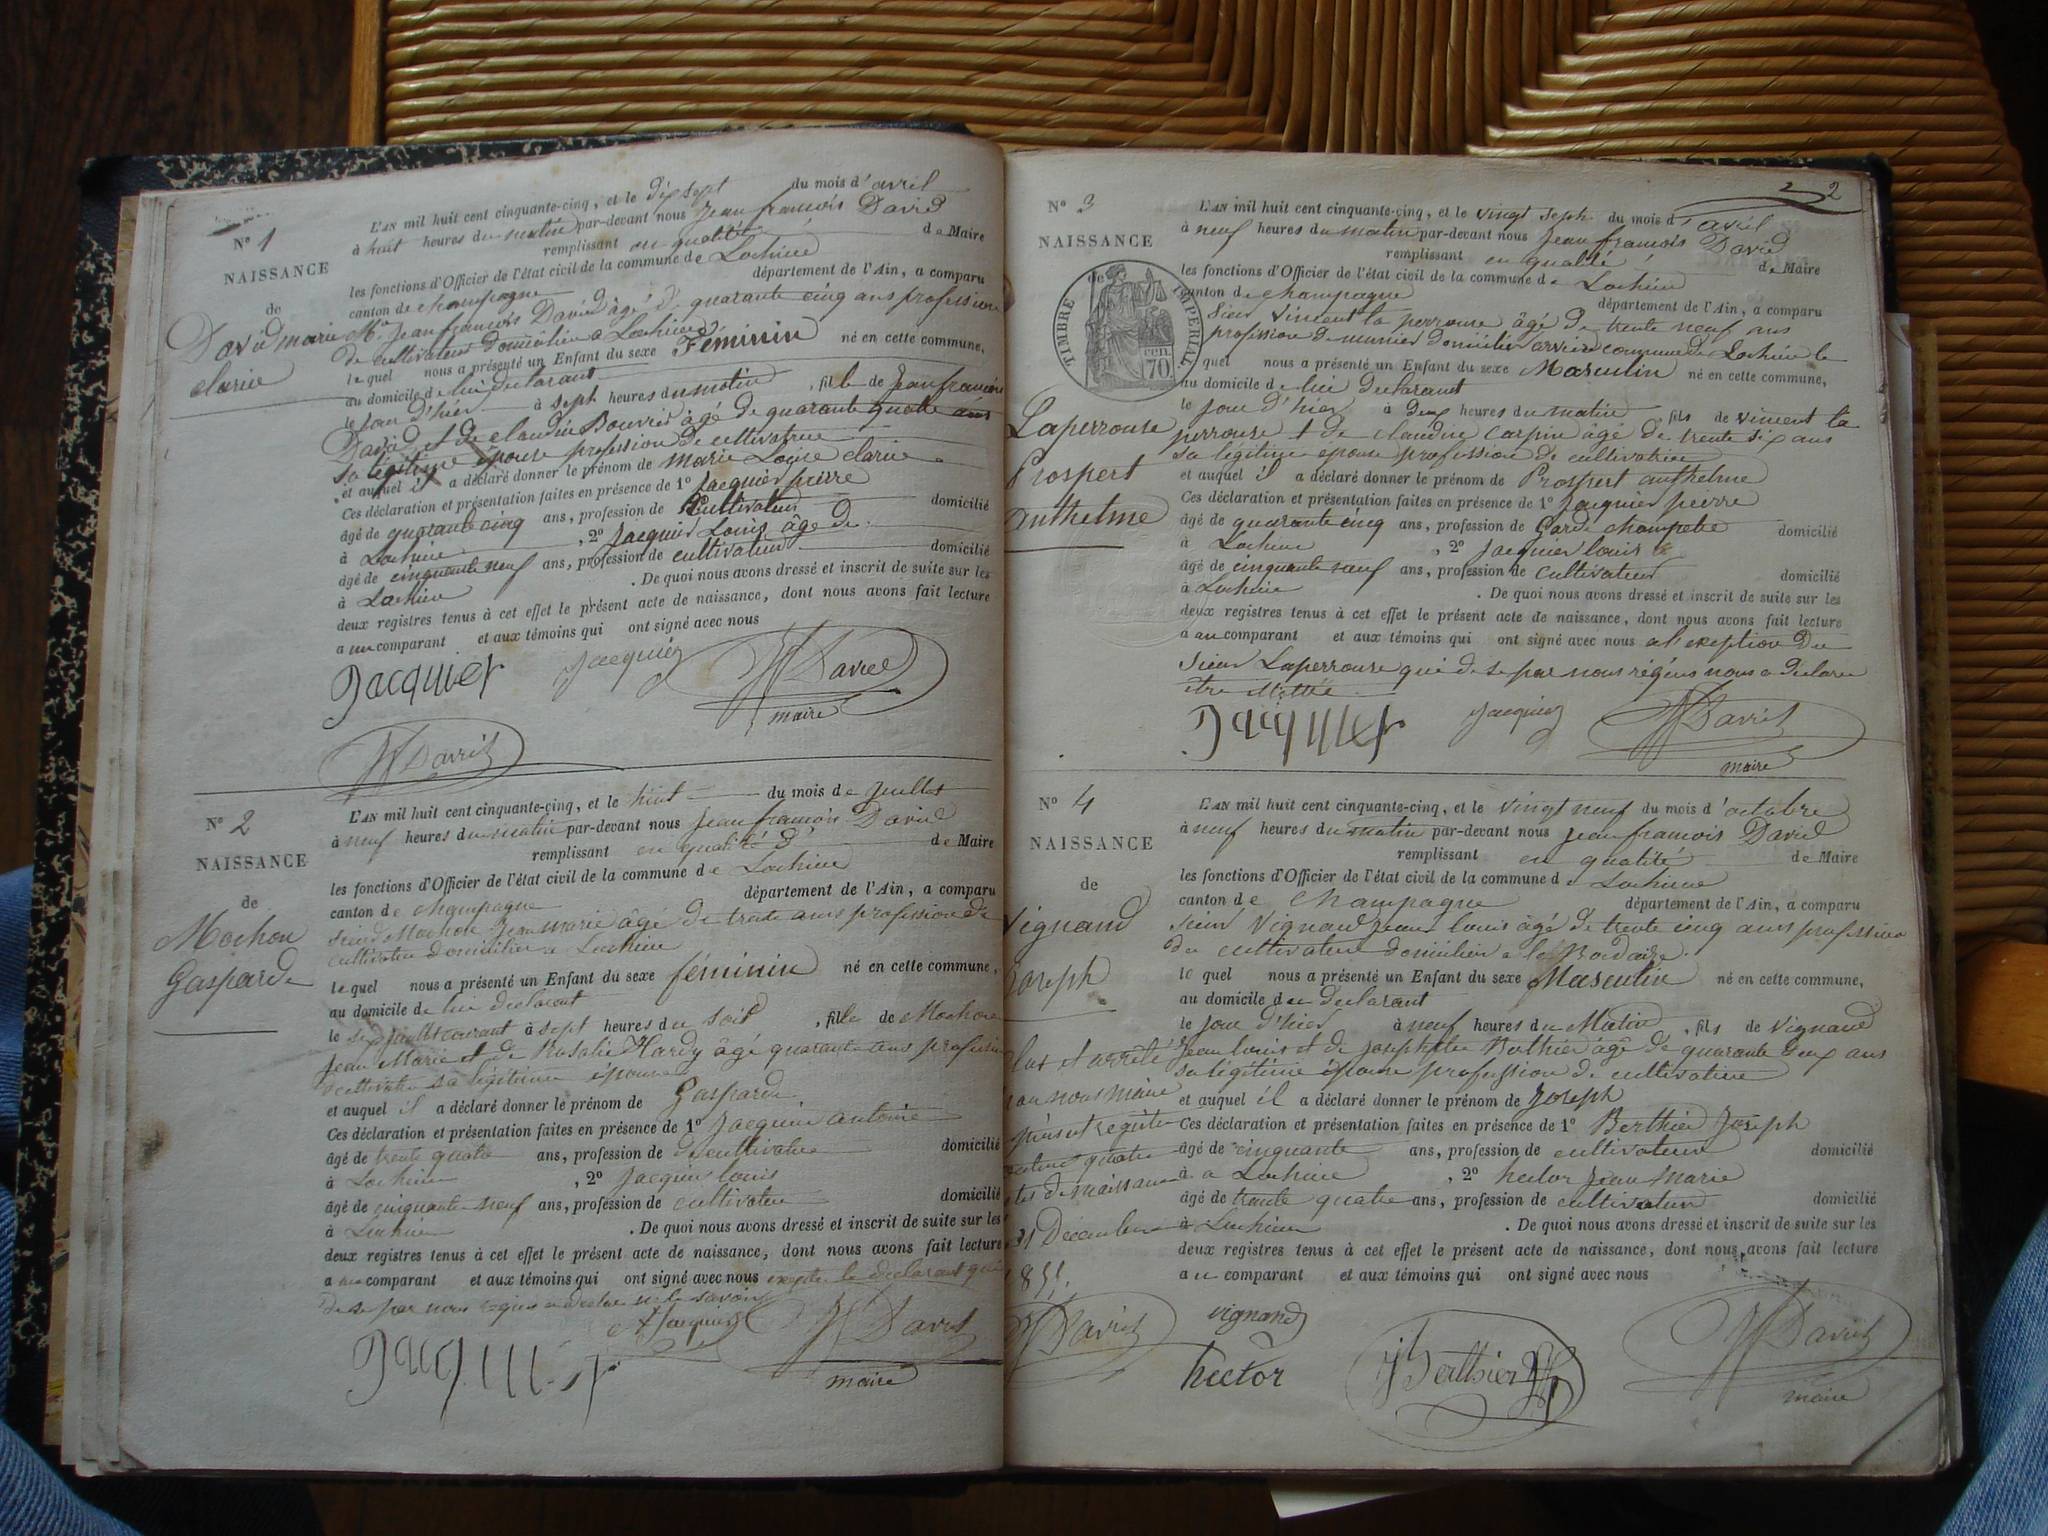 N° 1
NAISSANCE
de
David marie
clarice
L'AN mil huit cent cinquante-cinq, et le dix sept du mois d'avril
à huit heures du matin par-devant nous Jean françois David
remplissant en qualité de Maire
les fonctions d'Officier de l'état civil de la commune de Lochieu
canton de champagne département de l'Ain, a comparu
Mr Jean françois David âgé de quarante cinq ans profession
de cultivateur domicilié a Lochieu
le quel nous a présenté un Enfant du sexe Féminin né en cette commune,
au domicile de lui déclarant
le jour d'hier à sept heures du matin, fille de Jean françois
David et de claudine Bouvier âgé de quarante quatre ans
sa légitime épouse profession de cultivatrice
et auquel il a déclaré donner le prénom de marie Louise clarice
Ces déclaration et présentation faites en présence de 1° Jacquier pierre
âgé de quarante cinq ans, profession de Cultivateur domicilié
à Lochieu, 2° Jacquier Louis âgé de
âgé de cinquante neuf ans, profession de cultivateur domicilié
à Lochieu. De quoi nous avons dressé et inscrit de suite sur les
deux registres tenus à cet effet le présent acte de naissance, dont nous avons fait lecture
a au comparant et aux témoins qui ont signé avec nous
Jacquier Jacquier David
maire
David
N° 2
NAISSANCE
de
Mochon
Gasparde
L'AN mil huit cent cinquante-cinq, et le huit du mois de Juillet
à neuf heures du matin par-devant nous Jean françois David
remplissant en qualité d de Maire
les fonctions d'Officier de l'état civil de la commune de Lochieu
canton de champagne département de l'Ain, a comparu
sieur Mochon Jean marie âgé de trente ans profession de
cultivateur domicilier a Lochieu
le quel nous a présenté un Enfant du sexe féminin né en cette commune,
au domicile de lui declarant
le courant à sept heures du soir, fille de Mochon
Jean Marie et de Rosalie Hardy âgé quarante ans profession
sa légitime épouse
et auquel il a déclaré donner le prénom de Gasparde
Ces déclaration et présentation faites en présence de 1° Jacquier antoine
âgé de trente quatre ans, profession de cultivateur domicilié
à Lochieu, 2° Jacquier louis
âgé de cinquante neuf ans, profession de cultivateur domicilié
à Lochieu. De quoi nous avons dressé et inscrit de suite sur les
deux registres tenus à cet effet le présent acte de naissance, dont nous avons fait lecture
a au comparant et aux témoins qui ont signé avec nous excepté le declarant qui
de se par nous a declaré ne le savoir
A Jacquier David
Jacquier maire
2
N° 3
NAISSANCE
de
TIMBRE IMPERIAL
CEN. 70
Laperrouse
Prospert
anthelme
L'AN mil huit cent cinquante-cinq, et le vingt sept du mois d'avril
à neuf heures du matin par-devant nous Jean françois David
remplissant en qualité de Maire
les fonctions d'Officier de l'état civil de la commune de Lochieu
canton de champagne département de l'Ain, a comparu
Sieur Vincent la perrouse âgé de trente neuf ans
profession de domicilier commune de Lochieu le
quel nous a présenté un Enfant du sexe Masculin né en cette commune,
au domicile de lui declarant
le jour d'hier à deux heures du matin, fils de vincent la
perrouse et de claudine carpin âgé de trente six ans
sa legitime epouse profession de cultivatrice
et auquel il a déclaré donner le prénom de Prospert anthelme
Ces déclaration et présentation faites en présence de 1° Jacquier pierre
âgé de quarante cinq ans, profession de Garde champetre domicilié
à Lochieu, 2° Jacquier louis
âgé de cinquante neuf ans, profession de cultivateur domicilié
à Lochieu. De quoi nous avons dressé et inscrit de suite sur les
deux registres tenus à cet effet le présent acte de naissance, dont nous avons fait lecture
a au comparant et aux témoins qui ont signé avec nous a l'exeption du
sieur Laperrouse qui de se par nous régéus nous a déclaré
être
Jacquier Jacquier David
maire
N° 4
NAISSANCE
de
Vignand
Joseph
L'AN mil huit cent cinquante-cinq, et le vingt neuf du mois d'octobre
à neuf heures du matin par-devant nous Jean françois David
remplissant en qualité de Maire
les fonctions d'Officier de l'état civil de la commune de Lochieu
canton de Champagne département de l'Ain, a comparu
sieur Vignand Jean louis âgé de trente cinq ans profession
de cultivateur domicilier a
le quel nous a présenté un Enfant du sexe Masculin né en cette commune,
au domicile du declarant
le jour d'hier à neuf heures du Matin, fils de Vignand
Jean louis et de Josephte Berthier âgé de quarante deux ans
sa légitime épouse profession de cultivatrice
et auquel il a déclaré donner le prénom de Joseph
Ces déclaration et présentation faites en présence de 1° Berthier Joseph
âgé de cinquante ans, profession de cultivateur domicilié
à a Lochieu, 2° hector Jean marie
âgé de trente quatre ans, profession de cultivateur domicilié
à Lochieu. De quoi nous avons dressé et inscrit de suite sur les
deux registres tenus à cet effet le présent acte de naissance, dont nous avons fait lecture
a u comparant et aux témoins qui ont signé avec nous
Clos et arrêté
par nous maire
présent registre
quatre
actes de naissance
31 Décembre
1855.
David
vignand
hector J Berthier David
maire